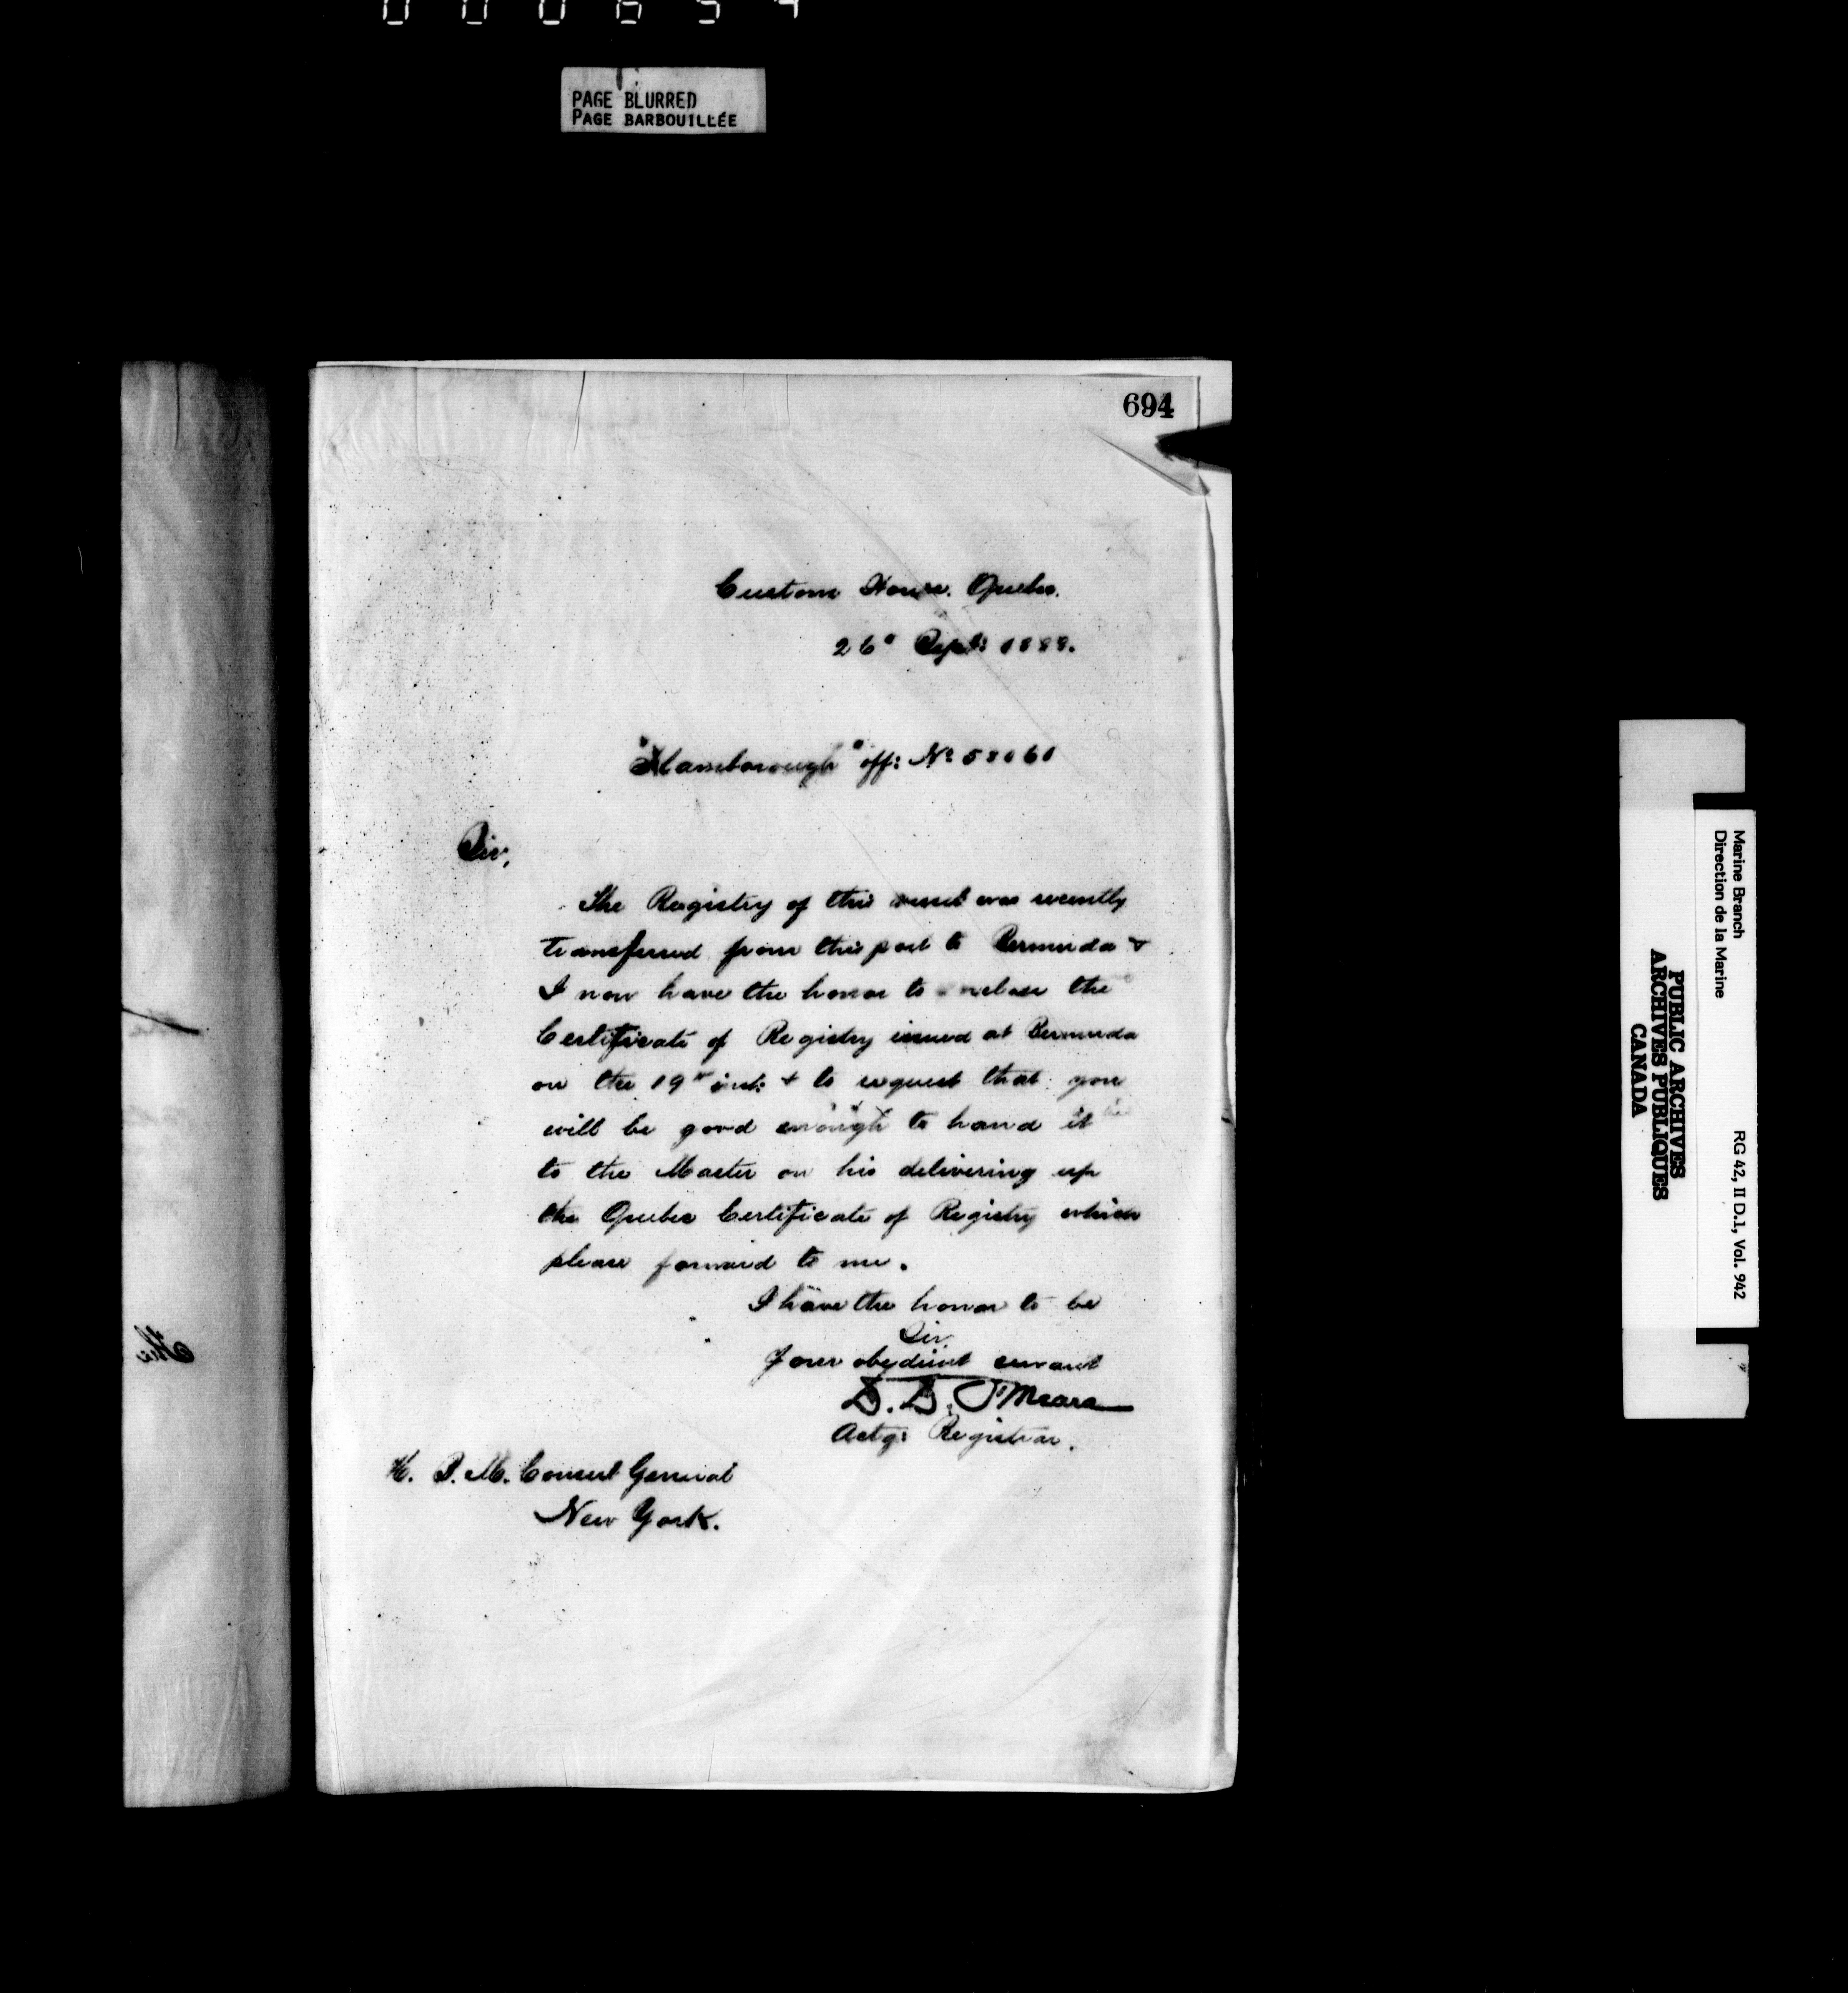 PAGE BLURRED
PAGE BARBOUILLÉE
694
Custom House. Quebec.
26" Sept: 1888.
off: No 58060
Sir,
The Registry of this vessel was recently
transferred from this port to Bermuda &
I now have the honor to enclose the
Certificate of Registry issued at Bermuda
on the 19th inst: & to request that you
will be good enough to hand it
to the Master on his delivering up
the Quebec Certificate of Registry which
please forward to me.
I have the honor to be
Sir,
Your obedient servant
D. D. O'Meara
Actg: Registrar.
H. B. M. Consul General
New York.
Marine Branch
Direction de la Marine
RG 42, II D.1, Vol. 942
PUBLIC ARCHIVES
ARCHIVES PUBLIQUES
CANADA